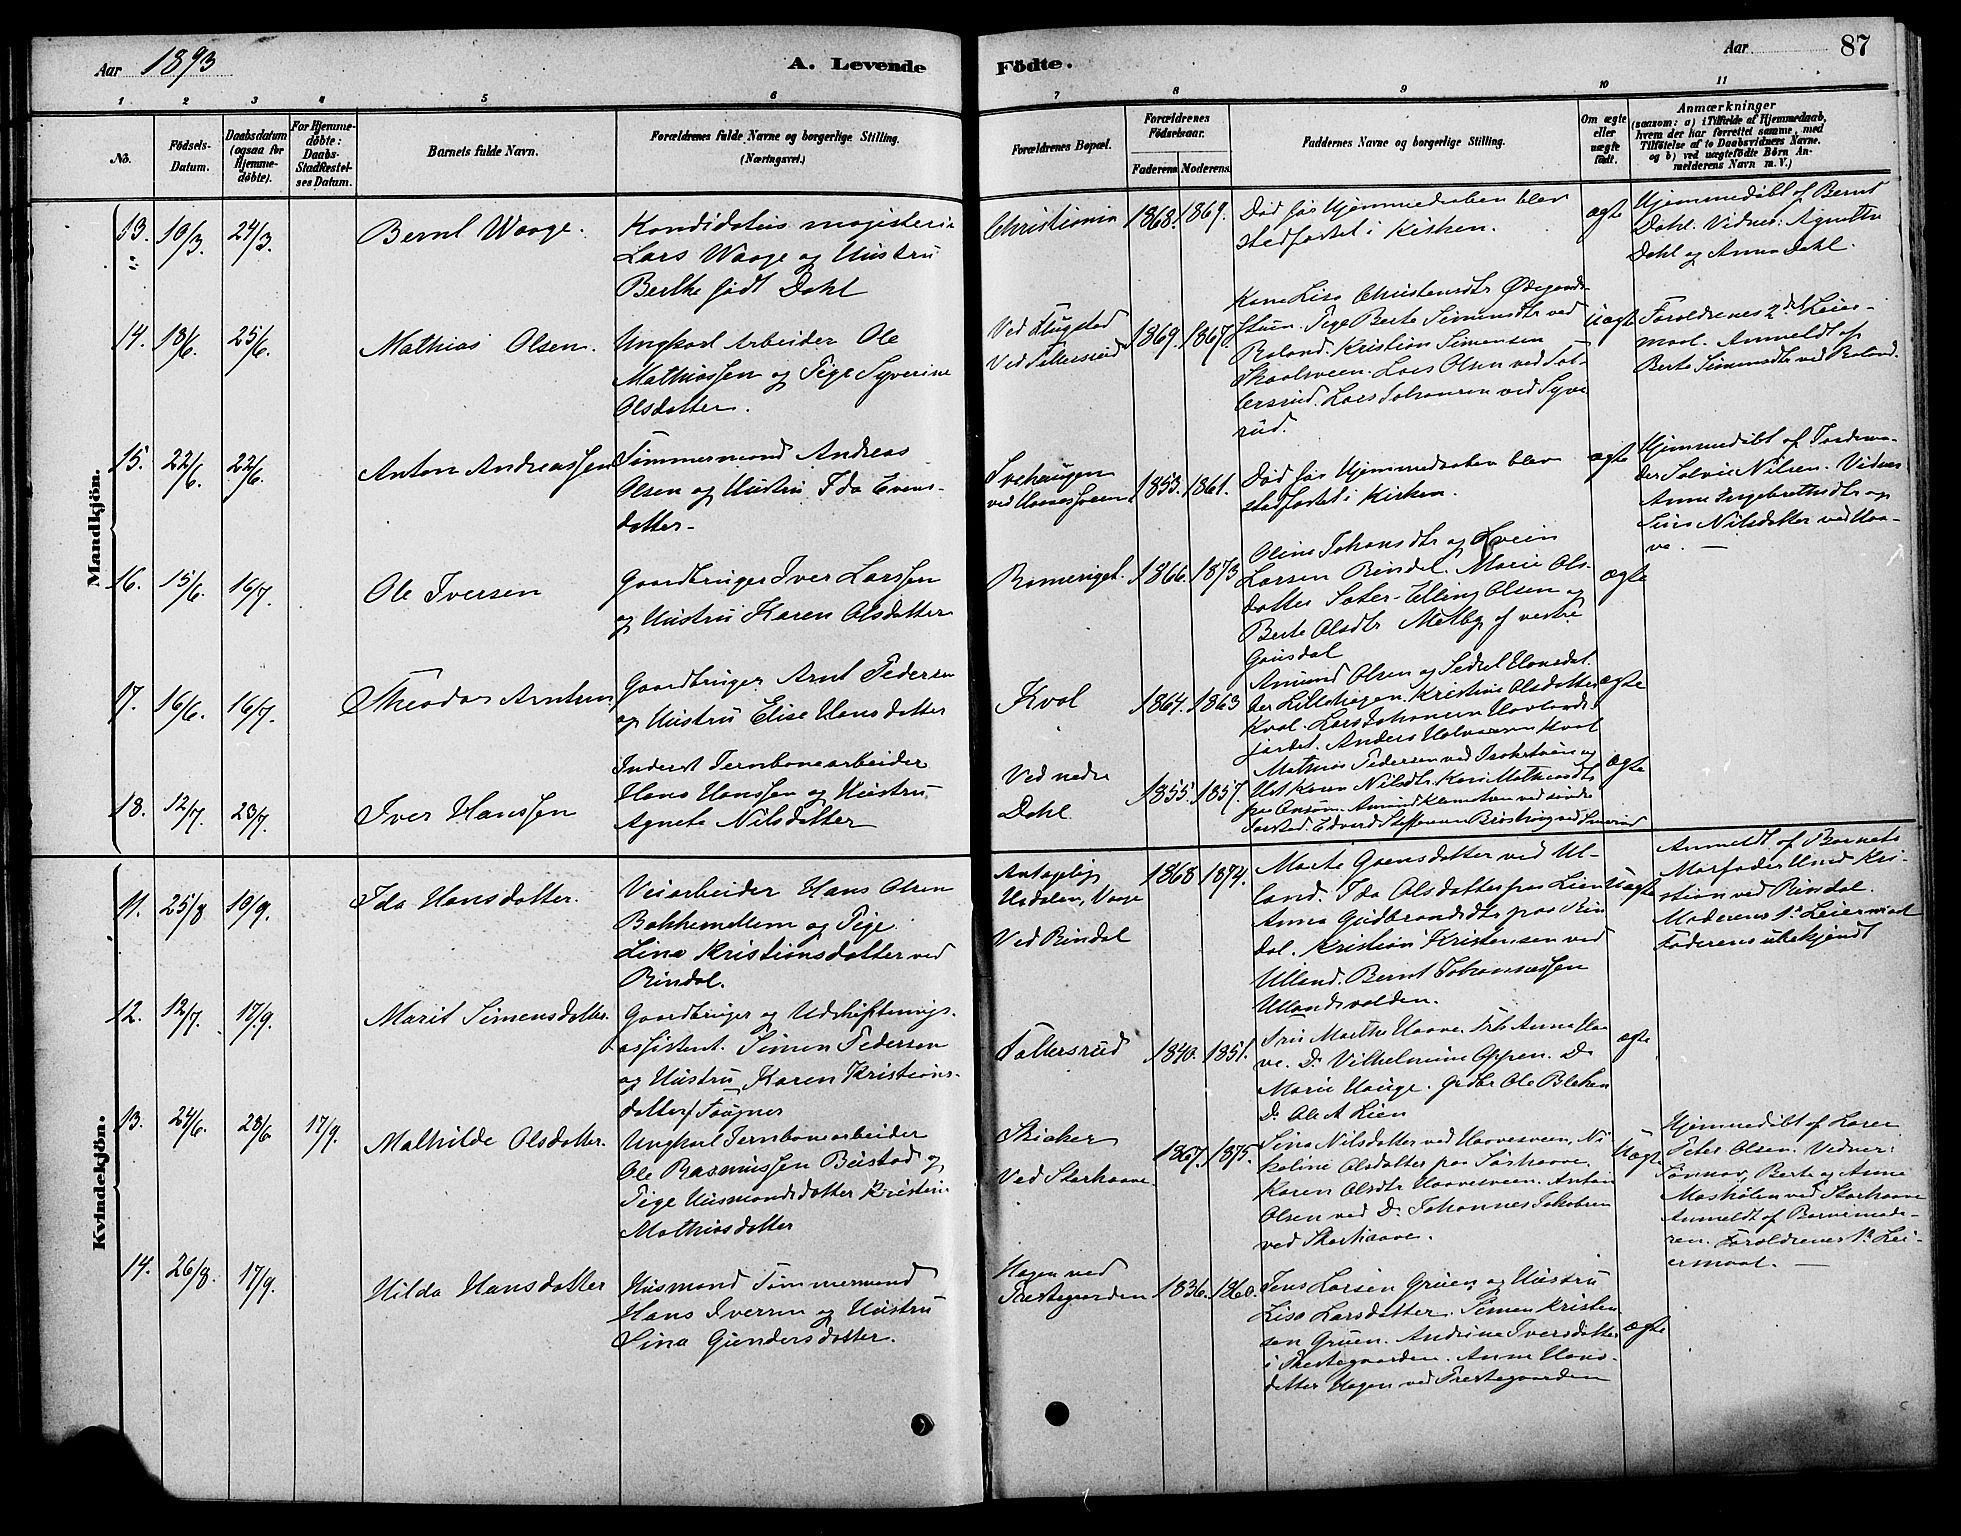 Aar 1893
A. Levende Födte.
Aar
87
1 2 3 4 5 6 7 8 9 10 11
No.
Födsels-
Datum.
Daabsdatum
(ogsaa for
Hjemme-
døbte).
For Hjemme-
døbte:
Daabs-
Stadfæstel-
ses Datum.
Barnets fulde Navn.
Forældrenes fulde Navne og borgerlige Stilling.
(Næringsvei.)
Forældrenes Bopæl.
Forældrenes
Fødselsaar.
Faderens Moderens
Faddernes Navne og borgerlige Stilling.
Om ægte
eller
uægte
født.
Anmærkninger
(saasom: a) i Tilfælde af Hjemmedaab,
hvem der har forrettet samme, med
Tilføielse af to Daabsvidners Navne.
og b) ved uægtefødte Børn An-
melderens Navn m. V.)
Mandkjön.
13. 19/3. 24/3. Bernt Waage.
Kandidatus magisterii
Lars Waage og Hustru
Berthe født Dahl
Christiania 1868. 1869.
Død før Hjemmedaaben blev
stadfæstet i Kirken.
ægte
Hjemmedøbt af Bernt
Dahl. Vidner: Agnethe
Dahl og Anna Dahl.
14. 18/6. 25/6. Mathias Olsen.
Ungkarl Arbeider Ole
Mathiassen og Pige Syverine
Olsdatter.
Ved Flugstad
Ved Tollersrud
1869. 1867.
Kone Lisa Christensdtr Ødegaards-
stuen. Pige Berte Simensdtr ved
Roland. Kristian Simensen
Skaalsveen. Lars Olsen ved Tol-
lersrud. Lars Johansen ved Syve
rud.
Uægte
Forældrenes 2det Leier-
maal. Anmeldt af
Berte Simensdtr ved Roland.
15. 22/6. 22/6. Anton Andreassen
Tømmermand Andreas
Olsen og Hustru Ida Evens-
datter.
ved Haavesveen 1853. 1861.
Død før Hjemmedaaben blev
stadfæstet i Kirken.
ægte
Hjemmedøbt af Jordemo-
der Solvie Nilsen. Vidner
Anne Ingebrethsdtr og
Nilsdatter ved Haa-
ve.
16. 15/6. 16/7. Ole Iversen
Gaardbruger Iver Larssen
og Hustru Karen Olsdatter
Romeriget. 1866. 1873
Oline Johansdtr og Svein
Larsen Rindal. Marie Ols
datter Sater. Elling Olsen og
Berte Olsdtr Melby af vestre
Gausdal
ægte
17. 16/6. 16/7. Theodor Arntsen
Gaardbruger Arnt Pedersen
og Hustru Elise Hansdatter
Kval 1864. 1863
Amund Olsen og Sedsel Hansdat
ter Lillehagen. Kristine Olsdatter
Kval. Lars Johansen Haavlands
jordet. Anders Halvorsen Kval
ægte
18. 12/7. 23/7. Iver Hanssen
Inderst Jernbanearbeider
Hans Hanssen og Hustru
Agnete Nilsdatter
Ved nedre
Dahl
1855. 1857.
Mathias Pedersen ved
Karen Nilsdtr. Kari Mathiasdtr
ægte
Kvindekjön.
11. 25/8 10/9. Ida Hansdatter.
Veiarbeider Hans Olsen
Bakkemellem og Pige
Lina Kristiansdatter ved
Rindal.
Ved Rindal
1868 1874.
Marte Goensdatter ved Ul-
land. Ida Olsdatter fra Lien
Anna Gudbrandsdtr fra Rin
dal. Kristian Kristensen ved
Ulland. Bernt Johannessen
Ullandsvolden.
Uægte
Anmeldt af Barnets
Morfader Husmd Kri-
stian ved Rindal.
Moderens 1ste Leiermaal
Faderens ubekjendt
12. 12/7. 17/9. Marit Simensdatter.
Gaardbruger og Udskiftnings-
assistent. Simen Pedersen
og Hustru Karen Kristians-
datter f Fougner
Tollersrud 1840. 1851.
Fru Marthe Haave. Frk Anna Haa
ve. Do Vilhelmine Appen. Do
Marie Hauge. Grdbr Ole Bleken
Do Ole A Lien
ægte
13. 24/6. 28/6 17/9. Mathilde Olsdatter.
Ungkarl Jernbanearbeider
Ole Rasmussen Bustad og
Pige Husmandsdatter Kristine
Mathiasdatter
Skiaker
Ved Storhaave.
1867. 1875.
Lina Nilsdatter ved Haavesveen. Ni
koline Olsdatter fra Sørhaave.
Karen Olsdtr Haavesveen. Anton
Olsen ved Do. Johannes Jakobsen
ved Storhaave.
Uægte
Hjemmedøbt af Lærer
Peter Olsen. Vidner:
Jommov, Berte og Anne
Mashølen ved Storhaave
Anmeldt af Barnemode-
ren. Forældrenes 1ste Lei-
ermaal.
14. 26/8. 17/9. Hilda Hansdatter
Husmand Tømmermand
Hans Iversen og Hustru
Lina Gundersdatter.
Hagen ved
Prestegaarden
1836. 1860.
Jens Larsen Gruen og Hustru
Lisa Larsdatter. Simen Kristen
sen Gruen. Andrine Iversdatter
i Prestegaarden. Anne Hans-
datter Hagen ved Prestegaarden
ægte